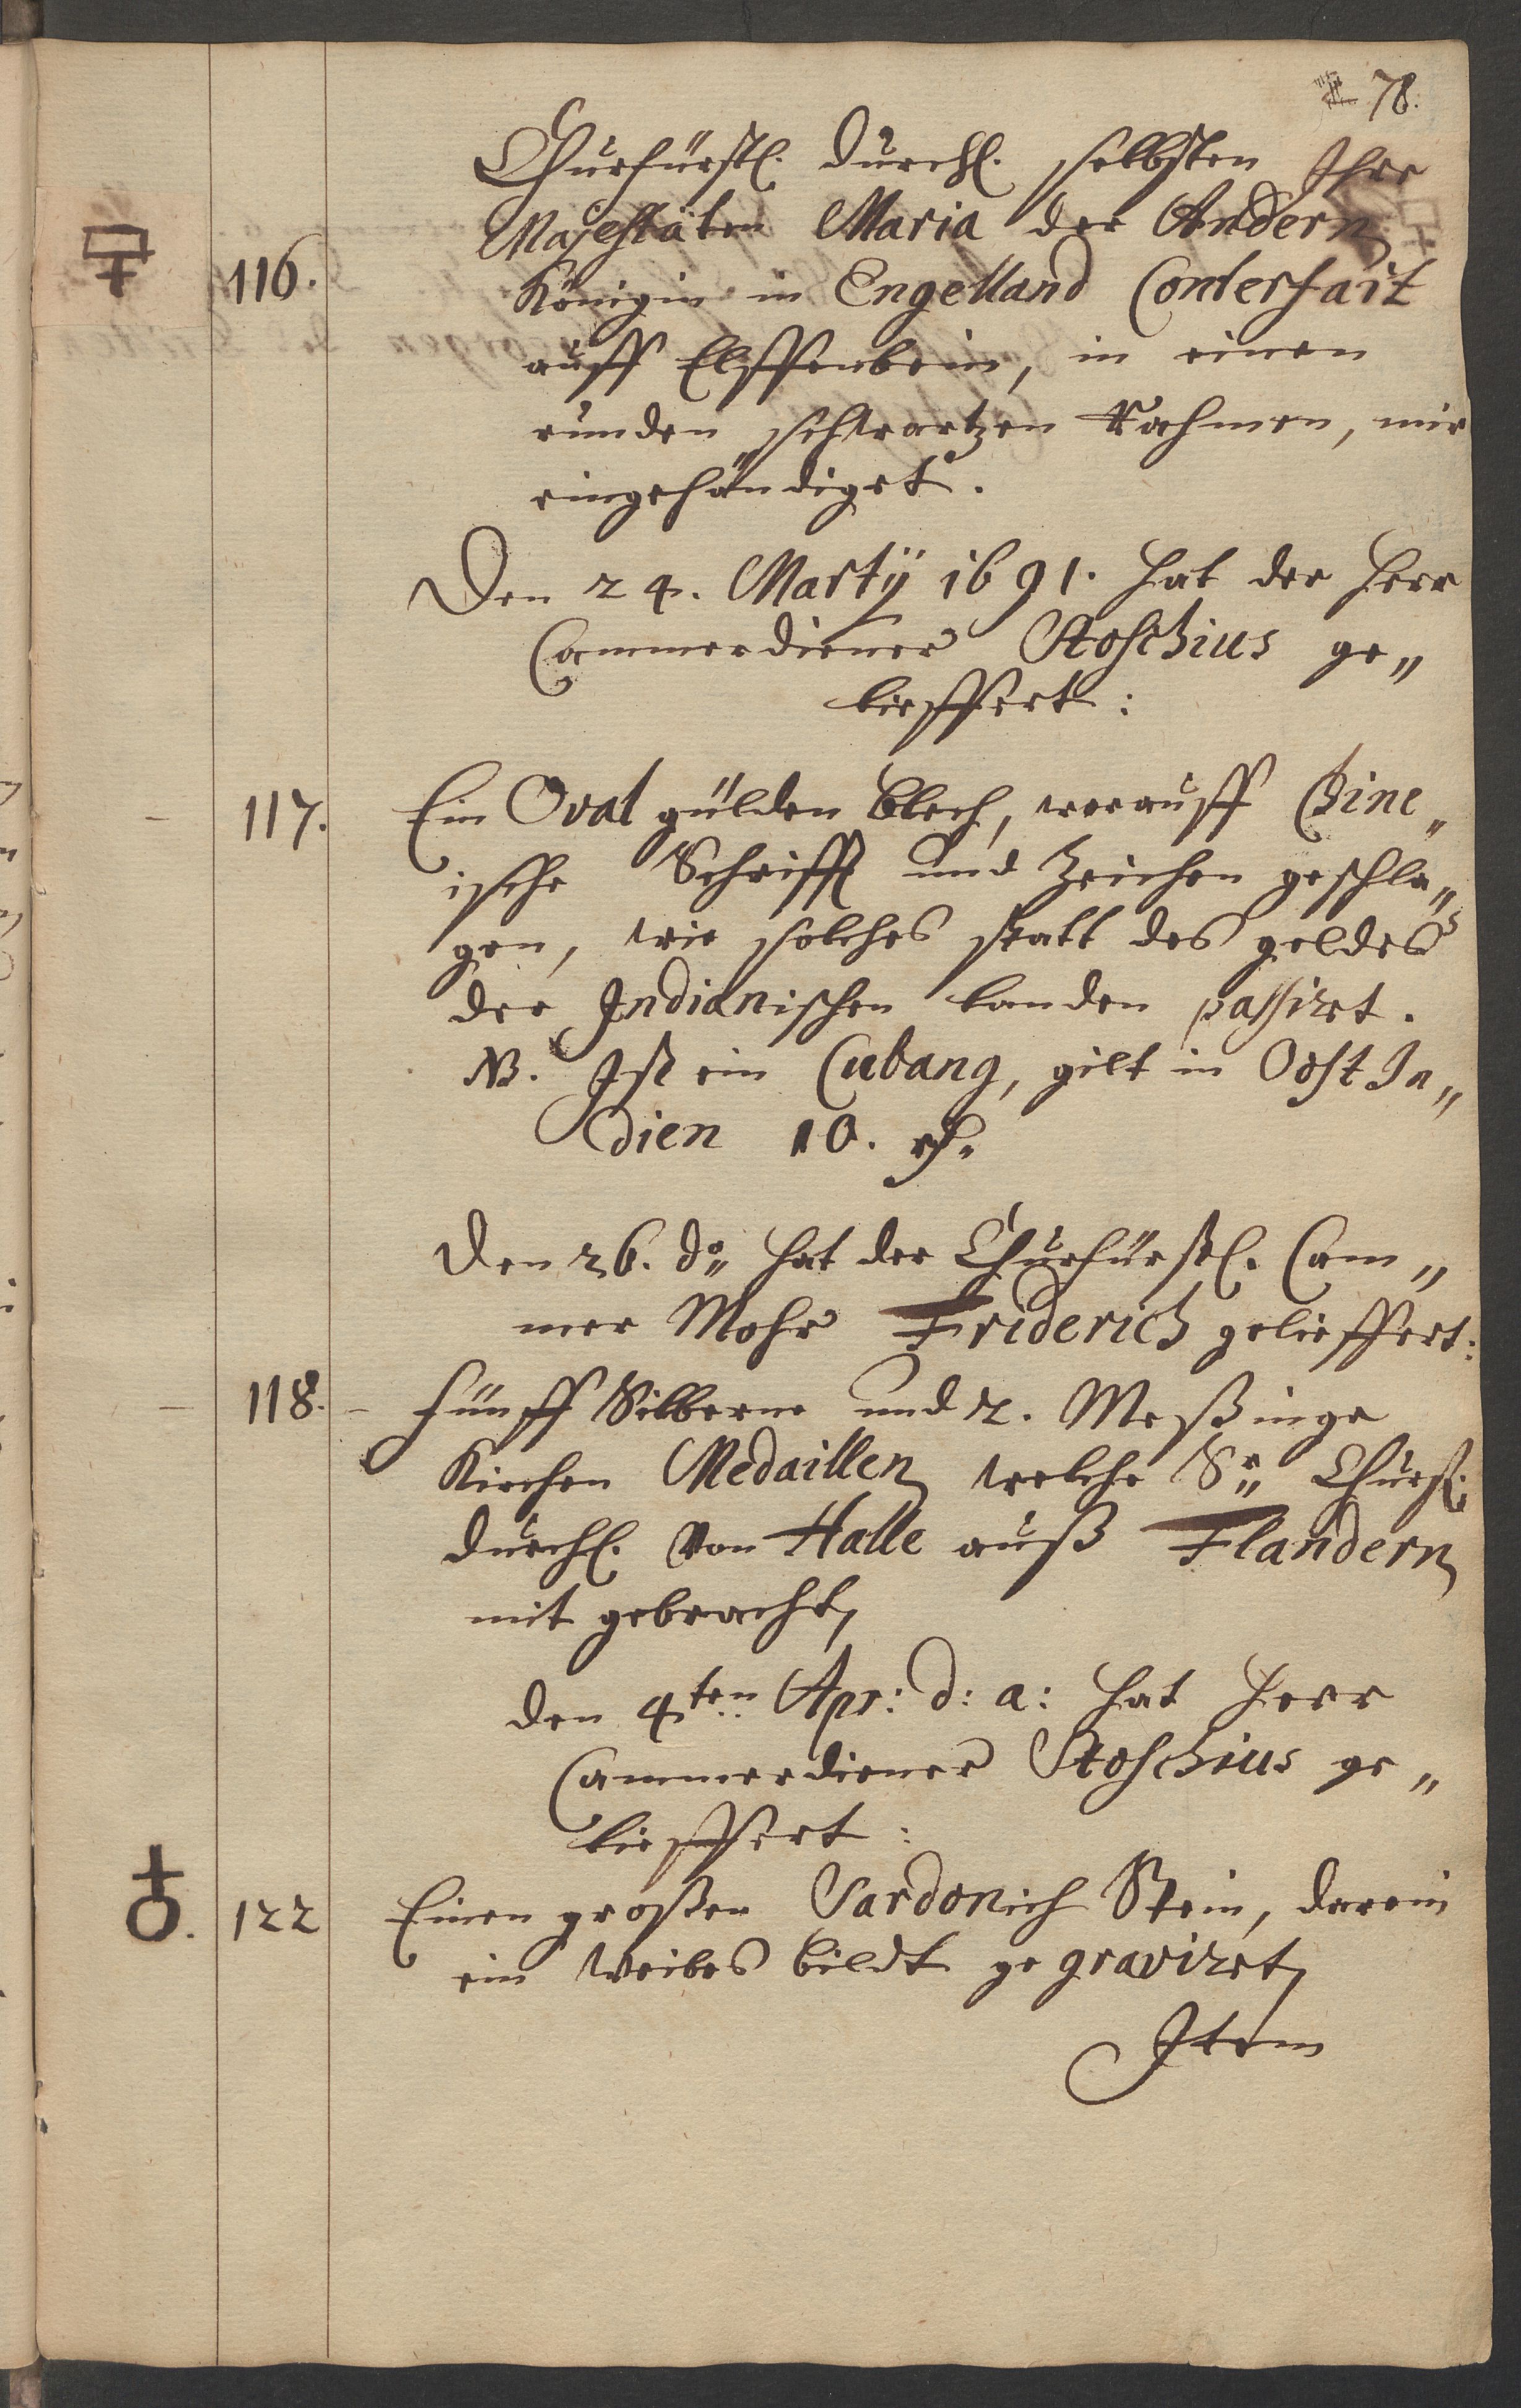 78.
Churfürstl. Durchl. selbsten Ihre
Majestäten Maria der Andern
116. Königin in Engelland Conterfait
auff Elffenbein, in einen
runden schwartzen Rahmen, mir
eingehändiget.
Den 24. Martÿ 1691. hat der Herr
Cammerdiener Stoschius ge„
lieffert:
117. Ein Oval gülden Blech, worauff Chine„
ische Schrifft und Zeichen geschla„
gen, wie solches statt des geldes
der Indianischen landen passiret.
NB. Ist ein Cubang, gilt in Oost In„
dien 10. rh.
Den 26. do„ hat der Churfürstl. Cam„
mer Mohr Friderich gelieffert:
118. Fünff Silberne und 2. Meßinge
Kirchen Medaillen welche Sr„ Churfl.
Durchl. von Halle auß Flandern
mit gebracht,
den 4ten Apr: d: a: hat Herr
Cammerdiener Stoschius ge„
lieffert:
122 Einen großen Sardonich Stein, darein
ein Weibes bildt gegraviret,
Item